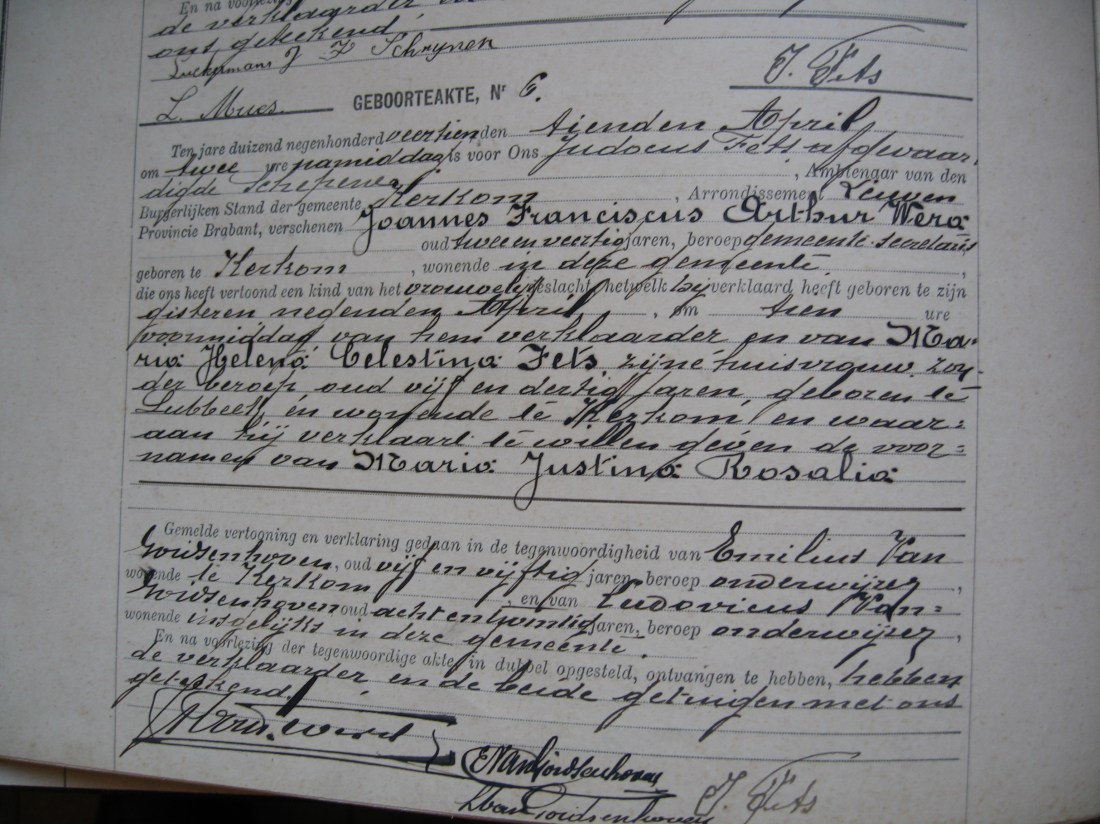 En na voorlezing
de verklaarder
ons geteekend
Luckermans J F Schrynen
J. Fets
L. Mues
GEBOORTEAKTE, Nr 6.
Ten jare duizend negenhonderd veertien den tienden April
om twee ure namiddag is voor Ons Judocus Fets afgevaar
digde Schepene , Ambtenaar van den
Burgerlijken Stand der gemeente Kerkom , Arrondissement Leuven
Provincie Brabant, verschenen Joannes Franciscus Arthur Wera
oud twee en veertig jaren, beroep gemeente secretaris
geboren te Kerkom , wonende in deze gemeente ,
die ons heeft vertoond een kind van het vrouwelijk geslacht, hetwelk hij verklaard heeft geboren te zijn
gisteren negenden April , om tien ure
voormiddag van hem verklaarder en van Ma-
ria Helena Celestina Fets zijne huisvrouw zon-
der beroep oud vijf en dertig jaren, geboren te
Lubbeek, en wonende te Kerkom, en waar=
aan hij verklaart te willen geven de voor=
namen van Maria Justina Rosalia
Gemelde vertooning en verklaring gedaan in de tegenwoordigheid van Emilius Van
Goidsenhoven, oud vijf en vijftig jaren, beroep onderwijzer ,
wonende te Kerkom , en van Ludovicus Van=
Goidsenhoven oud acht en twintig jaren, beroep onderwijzer ,
wonende insgelijks in deze gemeente.
En na voorlezing der tegenwoordige akte, in dubbel opgesteld, ontvangen te hebben, hebben
de verklaarder en de beide getuigen met ons
geteekend.
EVanGoidsenhoven
LVan Goidsenhoven
J. Fets